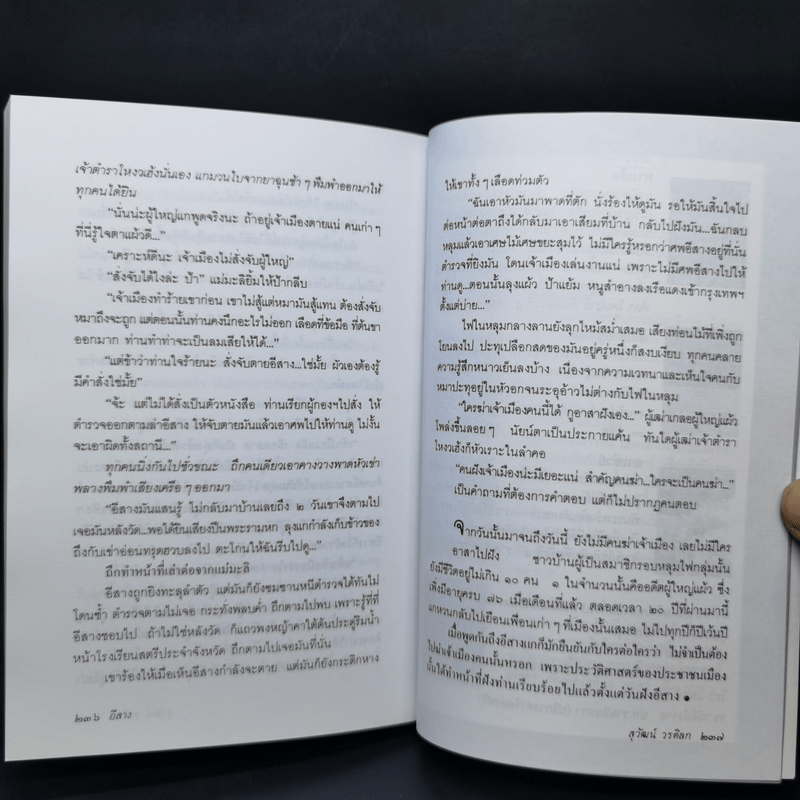 เจ้าตำราโหงวเฮ้งนั่นเอง แกมวนใบจากยาฉุนช้า ๆ พึมพำออกมาให้
ทุกคนได้ยิน
“นั่นน่ะผู้ใหญ่แกพูดจริงนะ ถ้าอยู่เจ้าเมืองตายแน่ คนเก่า ๆ
ที่นี่รู้ใจตาแผ้วดี...”
“เคราะห์ดีนะ เจ้าเมืองไม่สั่งจับผู้ใหญ่”
“สั่งจับได้ไงล่ะ ป้า” แม่มะลิยิ้มให้ป้ากลีบ
“เจ้าเมืองทำร้ายเขาก่อน เขาไม่สู้แต่หมามันสู้แทน ต้องสั่งจับ
หมาถึงจะถูก แต่ตอนนั้นท่านคงนึกอะไรไม่ออก เลือดที่ข้อมือ ที่ต้นขา
ออกมาก ท่านทำท่าจะเป็นลมเสียให้ได้...”
“แต่ข้าว่าท่านใจร้ายนะ สั่งจับตายอีสาง...ใช่มั้ย ผัวเองต้องรู้
มีคำสั่งใช่มั้ย”
“จ้ะ แต่ไม่ได้สั่งเป็นตัวหนังสือ ท่านเรียกผู้กองฯไปสั่ง ให้
ตำรวจออกตามล่าอีสาง ให้จับตายมันแล้วเอาศพไปให้ท่านดู ไม่งั้น
จะเอาผิดทั้งสถานี...”
ทุกคนนิ่งกันไปชั่วขณะ ถึกคนเดียวเอาคางวางพาดหัวเข่า
พลางพึมพำเสียงเครือ ๆ ออกมา
“อีสางมันแสนรู้ ไม่กลับมาบ้านเลยถึง ๒ วันเขาจึงตามไป
เจอมันหลังวัด...พอได้ยินเสียงปืนพระรามหก ลุงแกกำลังเก็บข้าวของ
ถึงกับเข่าอ่อนทรุดฮวบลงไป ตะโกนให้ฉันรีบไปดู...”
ถึกทำหน้าที่เล่าต่อจากแม่มะลิ
อีสางถูกยิงทะลุลำตัว แต่มันก็ยังซมซานหนีตำรวจได้ทันไม่
โดนซ้ำ ตำรวจตามไม่เจอ กระทั่งพลบค่ำ ถึกตามไปพบ เพราะรู้ที่ที่
อีสางชอบไป ถ้าไม่ใช่หลังวัด ก็แถวพงหญ้าคาใต้ต้นประดู่ริมน้ำ
หน้าโรงเรียนสตรีประจำจังหวัด ถึกตามไปเจอมันที่นั่น
เขาร้องไห้เมื่อเห็นอีสางกำลังจะตาย แต่มันก็ยังกระดิกหาง
๒๓๖ อีสาง
ให้เขาทั้ง ๆ เลือดท่วมตัว
“ฉันเอาหัวมันมาพาดที่ตัก นั่งร้องไห้ดูมัน รอให้มันสิ้นใจไป
ต่อหน้าต่อตาถึงได้กลับมาเอาเสียมที่บ้าน กลับไปฝังมัน...ฉันกลบ
หลุมแล้วเอาเศษไม้เศษขยะสุมไว้ ไม่มีใครรู้หรอกว่าศพอีสางอยู่ที่นั่น
ตำรวจที่ยิงมัน โดนเจ้าเมืองเล่นงานแน่ เพราะไม่มีศพอีสางไปให้
ท่านดู...ตอนนั้นลุงแผ้ว ป้าแย้ม หนูสำอางลงเรือแดงเข้ากรุงเทพฯ
ตั้งแต่บ่าย...”
ไฟในหลุมกลางลานยังลุกไหม้สม่ำเสมอ เสียงท่อนไม้ที่เพิ่งถูก
โยนลงไป ปะทุเปลือกสดของมันอยู่ครู่หนึ่งก็สงบเงียบ ทุกคนคลาย
ความรู้สึกหนาวเย็นลงบ้าง เนื่องจากความเวทนาและเห็นใจคนกับ
หมาปะทุอยู่ในหัวอกจนระอุอ้าวไม่ต่างกับไฟในหลุม
“ใครฆ่าเจ้าเมืองคนนี้ได้ กูอาสาฝังเอง...” ผู้เฒ่าเกลอผู้ใหญ่แผ้ว
โพล่งขึ้นลอยๆ นัยน์ตาเป็นประกายแค้น ทันใดผู้เฒ่าเจ้าตำรา
โหงวเฮ้งก็หัวเราะในลำคอ
“คนฝังเจ้าเมืองน่ะมีเยอะแน่ สำคัญคนฆ่า...ใครจะเป็นคนฆ่า...”
เป็นคำถามที่ต้องการคำตอบ แต่ก็ไม่ปรากฏคนตอบ
จากวันนั้นมาจนถึงวันนี้ ยังไม่มีคนฆ่าเจ้าเมือง เลยไม่มีใคร
อาสาไปฝัง ชาวบ้านผู้เป็นสมาชิกรอบหลุมไฟกลุ่มนั้น
ยังมีชีวิตอยู่ไม่เกิน ๑๐ คน ๑ ในจำนวนนั้นคืออดีตผู้ใหญ่แผ้ว ซึ่ง
เพิ่งมีอายุครบ ๗๖ เมื่อเดือนที่แล้ว ตลอดเวลา ๒๐ ปีที่ผ่านมานี้
แกหวนกลับไปเยือนเพื่อนเก่า ๆ ที่เมืองนั้นเสมอ ไม่ไปทุกปีก็ปีเว้นปี
เมื่อพูดกันถึงอีสางแกก็มักยืนยันกับใครต่อใครว่า ไม่จำเป็นต้อง
ไปฆ่าเจ้าเมืองคนนั้นหรอก เพราะประวัติศาสตร์ของประชาชนเมือง
นั้นได้ทำหน้าที่ฝังท่านเรียบร้อยไปแล้วตั้งแต่วันฝังอีสาง
สุวัฒน์ วรดิลก ๒๓๗